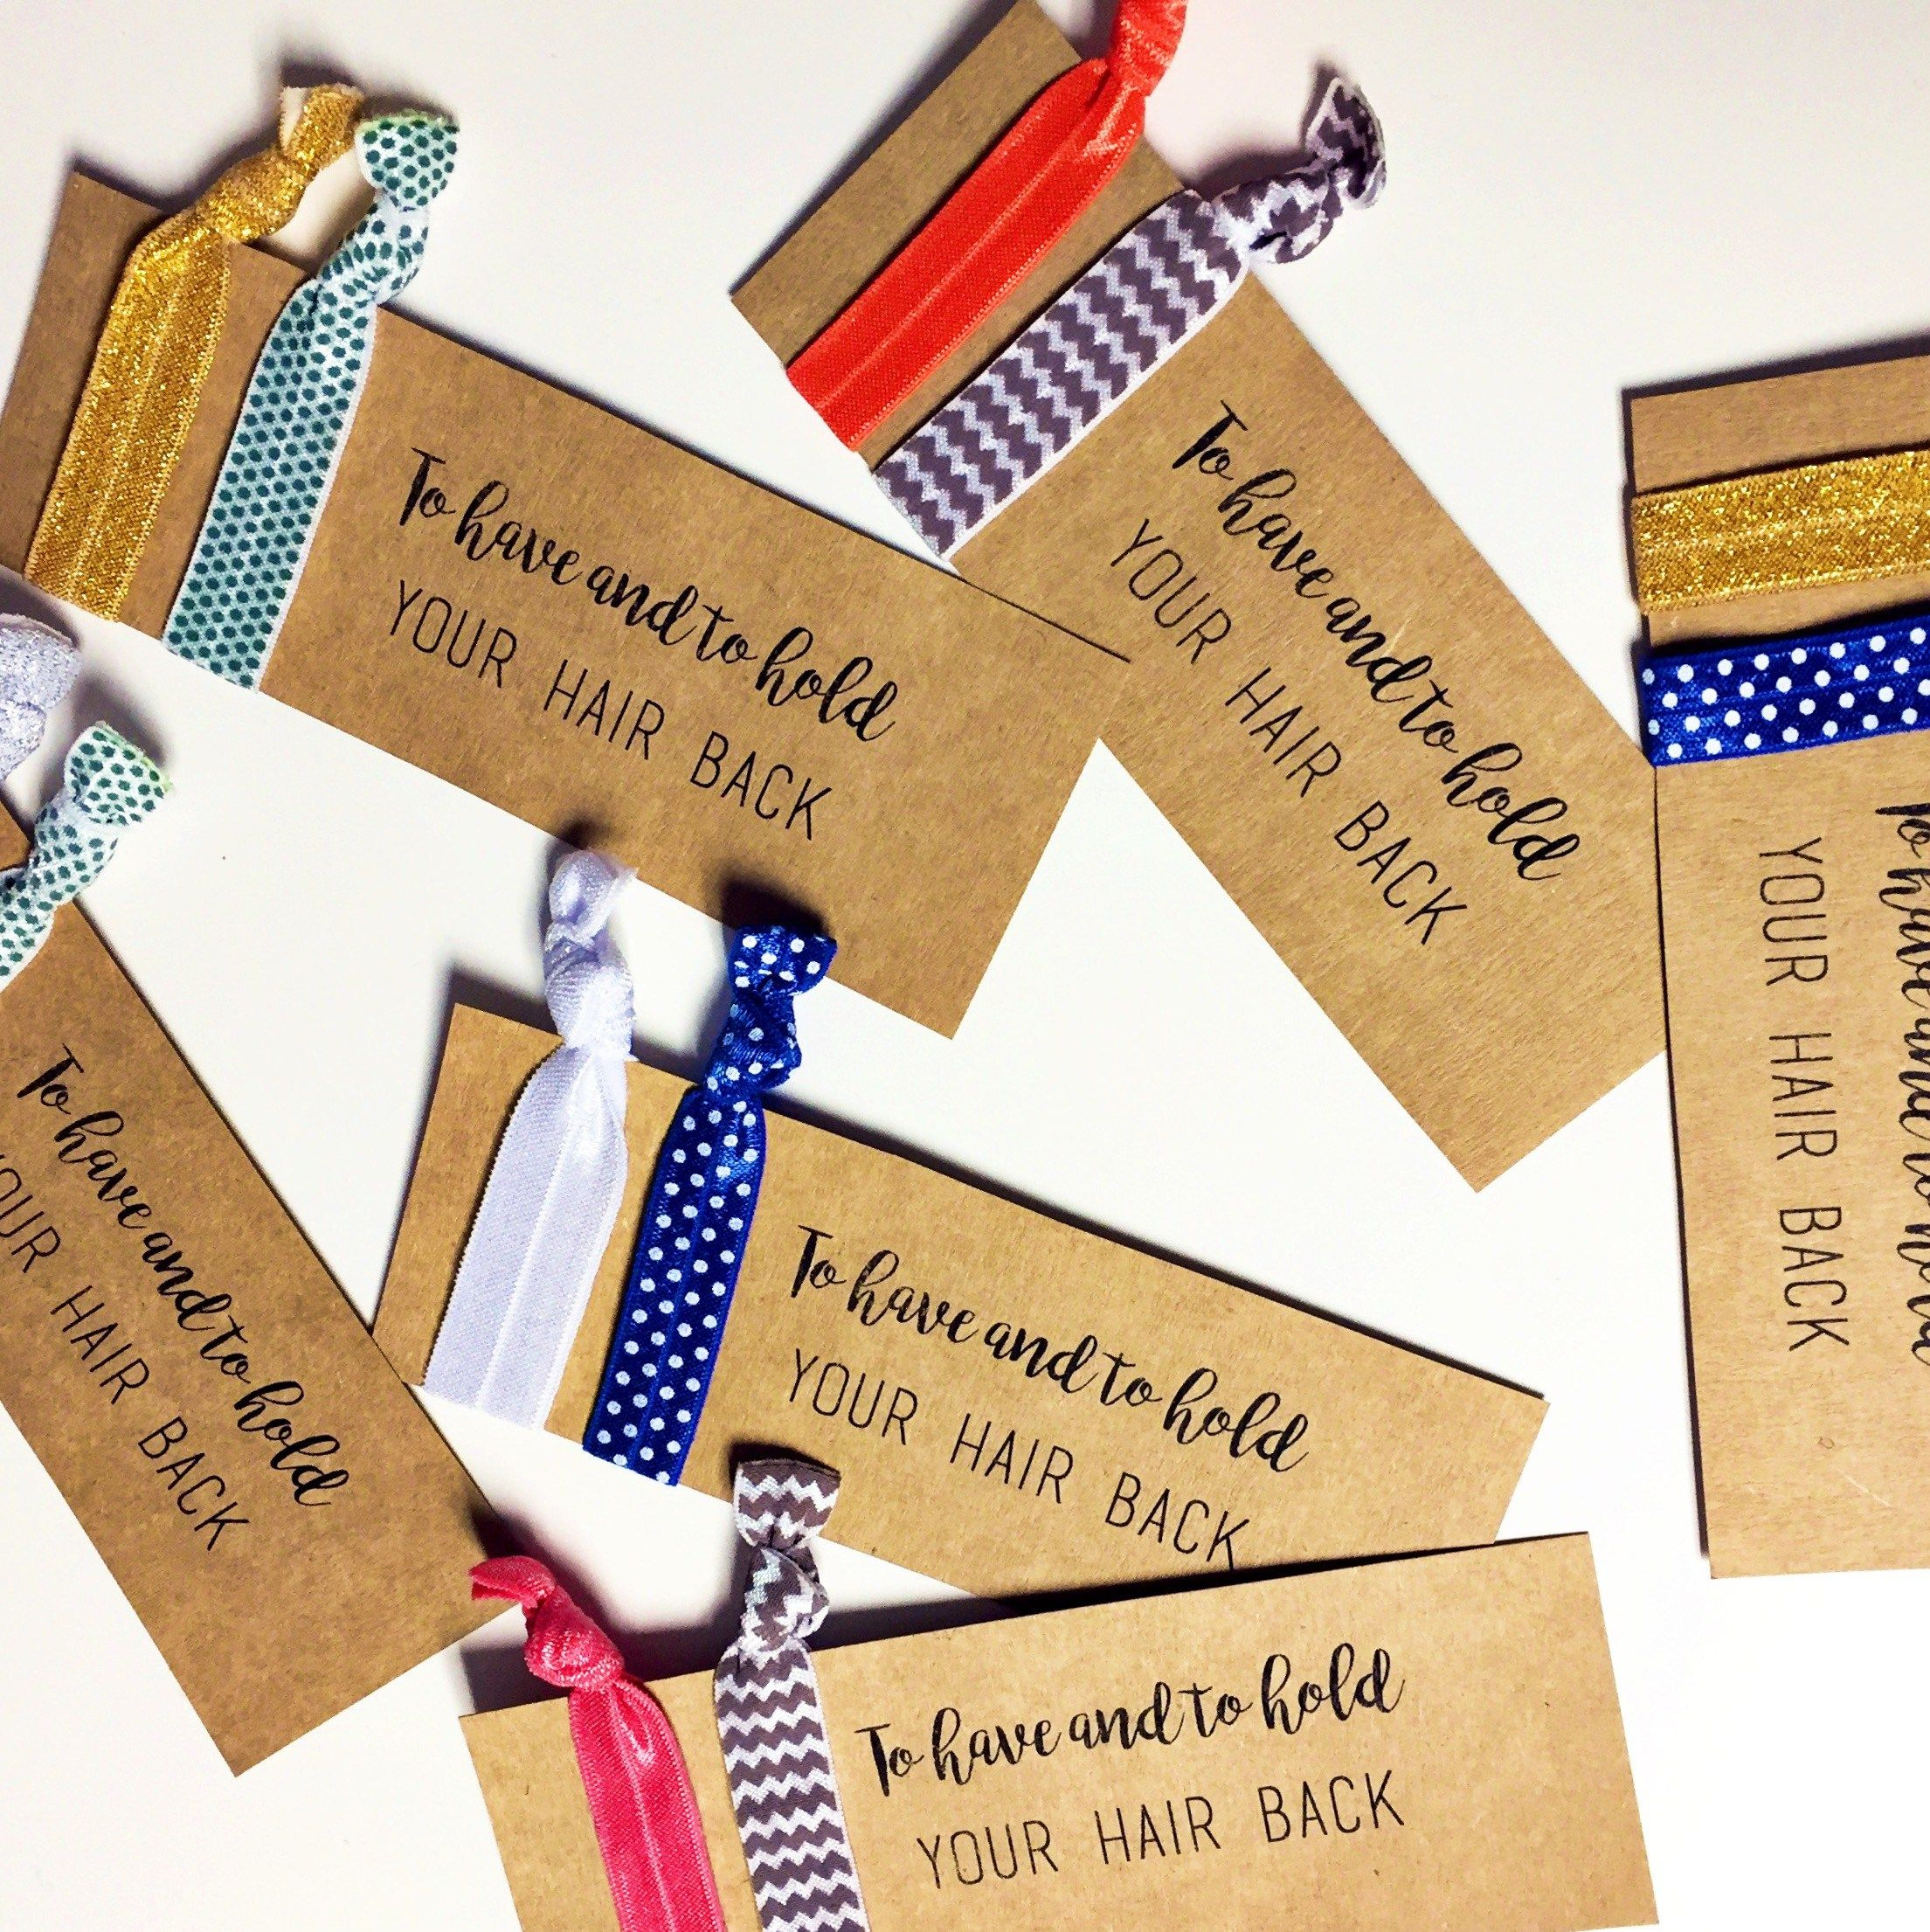 To have and to hold
YOUR HAIR BACK
To have and to hold
YOUR HAIR BACK
To have and to hold
YOUR HAIR BACK
To have and to hold
YOUR HAIR BACK
To have and to hold
YOUR HAIR BACK
To have and to hold
YOUR HAIR BACK